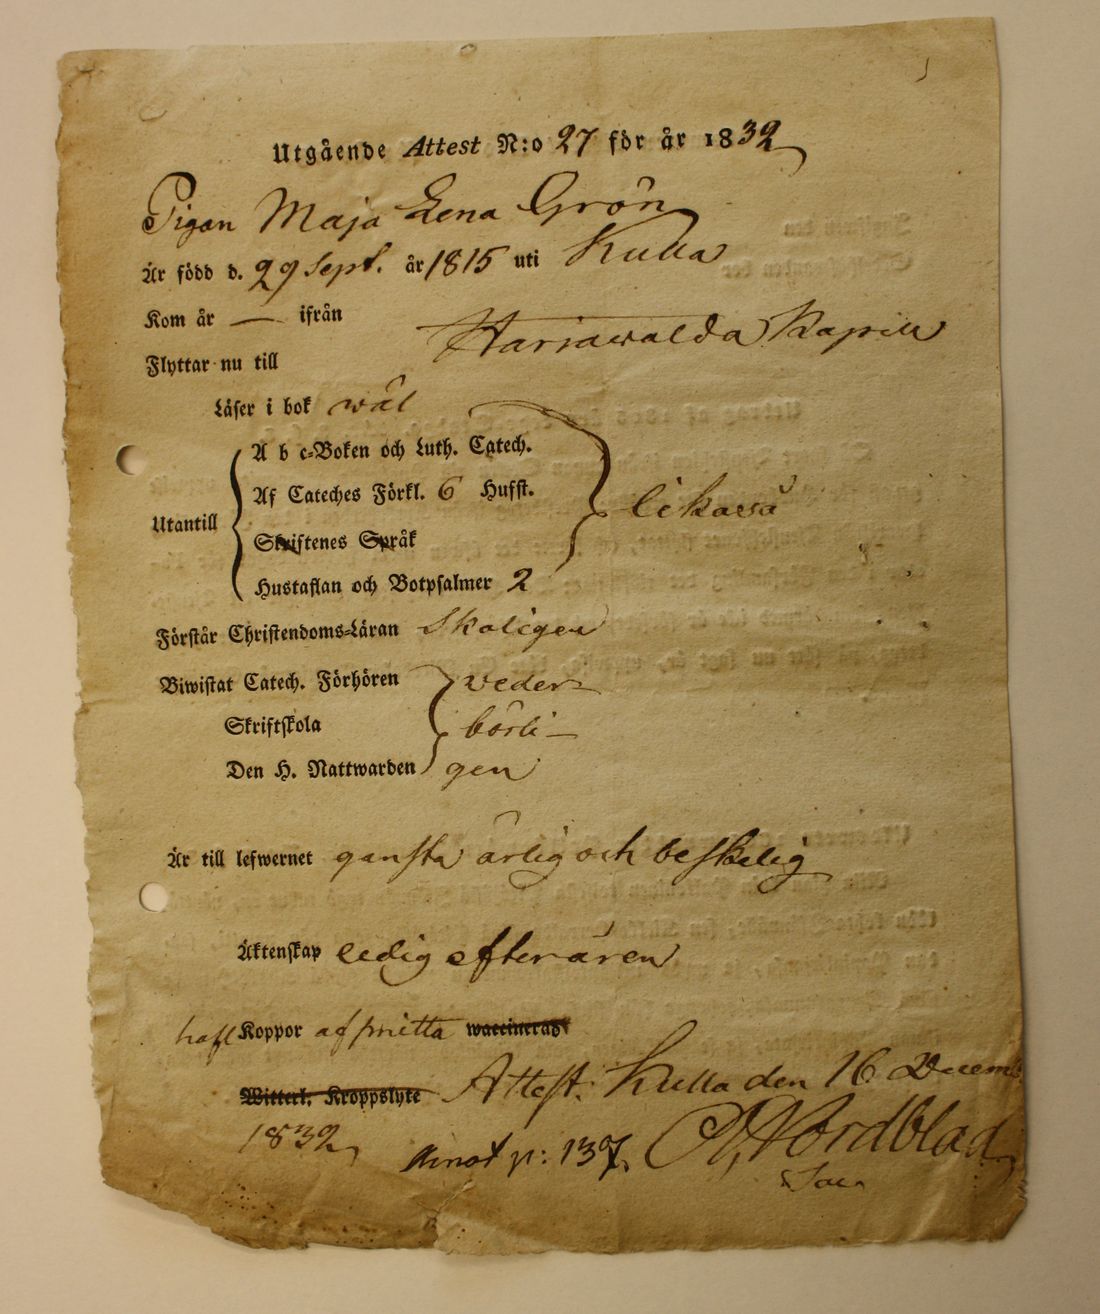 Utgående Attest N:o 27 för år 1832
Pigan Maja Lena Grön
Är född d. 29 Sept. år 1815 uti Kulla
Kom år — ifrån
Flyttar nu till Harjawalda Kapell
Läser i bok wäl
A b c-Boken och Luth. Catech.
Af Cateches Förkl. 6 Hufst.
Utantill likaså
Skriftenes Språk
Hustaflan och Botpsalmer 2
Förstår Christendoms-Läran Skäligen
Biwistat Catech. Förhören veder-
Skriftskola börli-
Den H. Nattwarden gen
Är till lefwernet ganska ärlig och beskelig
Äktenskap ledig efter ären
haft Koppor af smitta waccinerad
Witterl. Kroppslyte Attest. Kulla den 16 Decemb
1832 p: 137. Nordblad